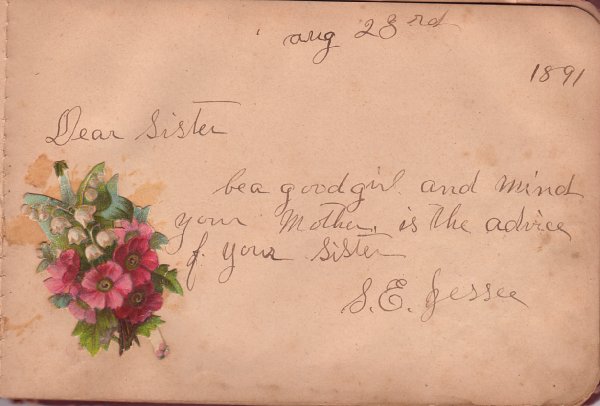 aug 23rd
1891
Dear Sister
be a good girl and mind
your Mother, is the advice
of your Sister
S. E. Jessee